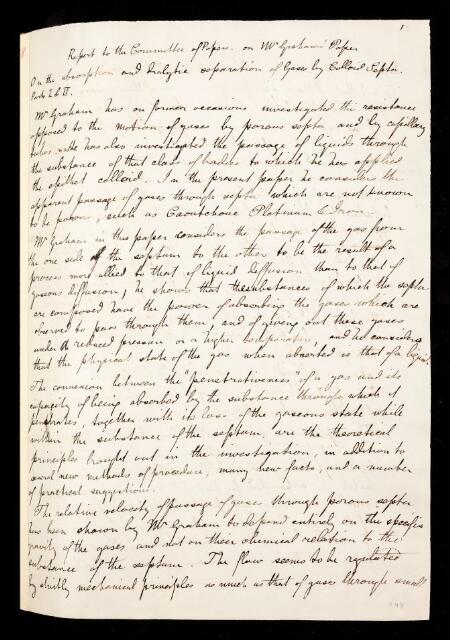 1
Report to the Committee of Papers on Mr Graham's Paper
On the absorption and Dialytic separation of Gases by Colloid Septa.
Parts I & II.
Mr Graham has on former occasions investigated the resistance
opposed to the motion of gases by porous septa and by capillary
tubes. He has also investigated the passage of liquids through
the substance of that class of bodies to which he has applied
the epithet colloid. In the present paper he considers the
apparent passage of gases through septa which are not known
to be porous, such as Caoutchouc Platinum & Iron.
Mr Graham in this paper considers the passage of the gas from
the one side of the septum to the other to be the result of a
process more allied to that of liquid diffusion than to that of
gaseous diffusion, he shows that the substances of which the septa
are composed have the power of absorbing the gases which are
observed to pass through them, and of giving out these gases
under reduced pressure or a higher temperature, and he considers
that the physical state of the gas when absorbed is that of a liquid.
The connexion between the "penetrativeness" of a gas and its
capacity of being absorbed by the substance through which it
penetrates, together with its loss of the gaseous state while
within the substance of the septum, are the theoretical
principles brought out in the investigation, in addition to
several new methods of procedure, many new facts, and a number
of practical suggestions.
The relative velocity of passage of gases through porous septa
has been shown by Mr Graham to depend entirely on the specific
gravity of the gases and not on their chemical relation to the
substance of the septum. The flow seems to be regulated
by strictly mechanical principles as much as that of gases through small